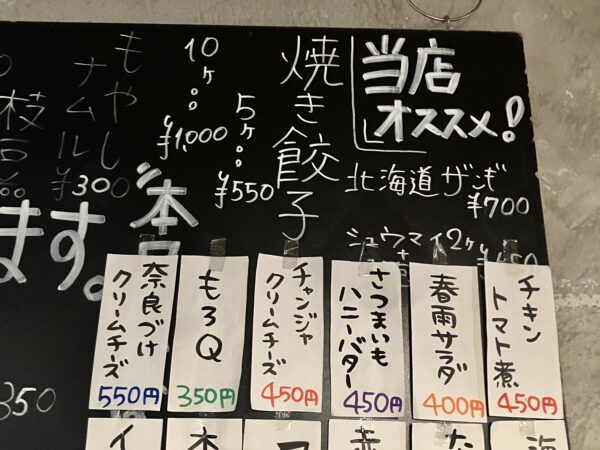 当店
オススメ!
北海道ザンギ
¥700
シュウマイ2ヶ
焼き餃子
5ヶ…¥550
10ヶ…¥1,000
もやし
ナムル
¥300
ます。
チキン
トマト煮
450円
春雨サラダ
400円
さつまいも
ハニーバター
450円
チャンジャ
クリームチーズ
450円
もろQ
350円
奈良づけ
クリームチーズ
550円
350